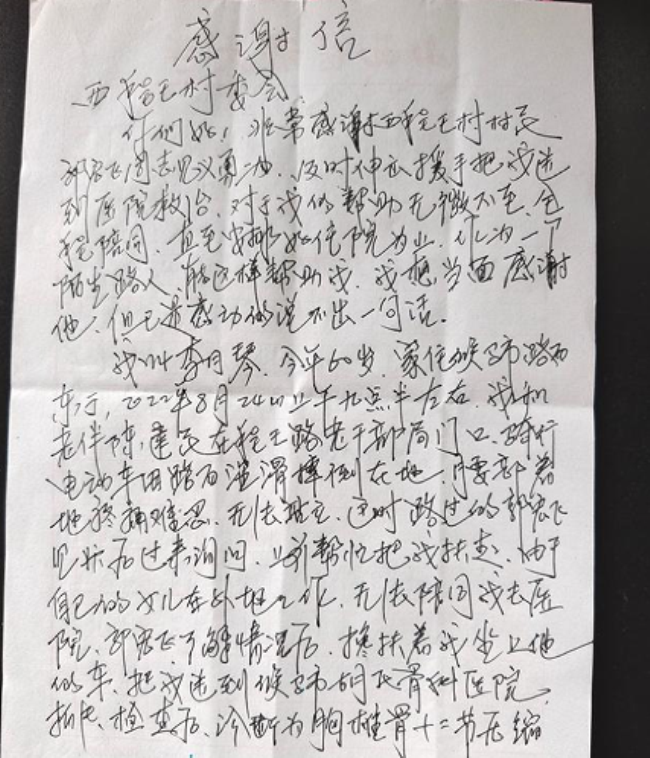 感谢信
西程王村委会
你们好！非常感谢西程王村村民
郭宏飞同志见义勇为、及时伸出援手把我送
到医院救治、对于我的帮助无微不至、全
程陪同、直至安排好住院为止、作为一个
陌生路人、能这样帮助我、我想当面感谢
他、但已是感动的说不出一句话.
我叫李月琴、今年60岁、家住候马市路西
东厅，2022年8月24日上午九点半左右、我和
老伴陈建民在程王路老干部局门口、骑行
电动车因路面湿滑摔倒在地、腰部着
地疼痛难忍、无法站立、这时路过的郭宏飞
见状后过来询问、上前帮忙把我扶起、由于
自己的女儿在外地工作、无法陪同我去医
院、郭宏飞了解情况后、搀扶着我坐上他
的车、把我送到候马市胡氏骨科医院、
拍片、检查后、诊断为胸椎骨十二节压缩